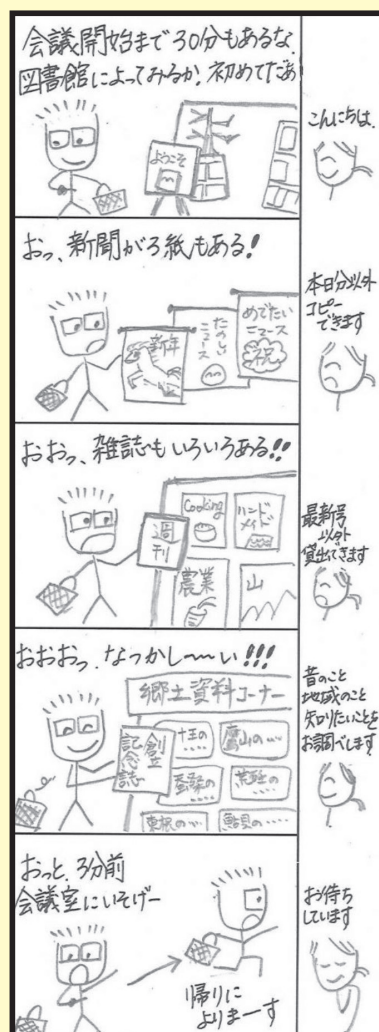 会議開始まで30分もあるな
図書館によってみるか。初めてだあ
ようこそ
こんにちは。
おっ、新聞が3紙もある!
新年
たのしい
ニュース
めでたい
ニュース
祝
本日分以外
コピー
できます
おおっ、雑誌もいろいろある!!
週刊
Cooking
ハンド
メイド
農業
山
最新号
以外
貸出できます
おおおっ、なつかし〜〜い!!!
郷土資料コーナー
創立
記念誌
十王の
‥‥
鷹山の‥‥
蚕桑の
‥‥
荒砥の
‥‥
東根の‥‥
鮎貝の‥‥
昔のこと
地域のこと
知りたいことを
お調べします
おっと、3分前
会議室にいそげー
帰りに
よりまーす
お待ち
しています